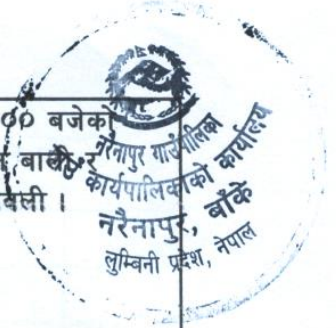 ०० बजेको
नरैनापुर गाउँपालिका
गाउँ कार्यपालिकाको कार्यालय
नरैनापुर, बाँके
लुम्बिनी प्रदेश, नेपाल